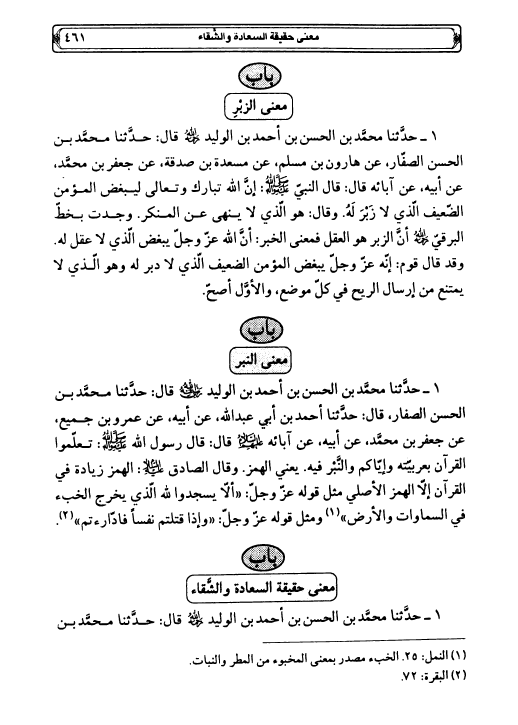 معنى حقيقة السعادة والشَّقاء
٤٦١
باب
معنى الزبْرِ
١ ـ حدَّثنا محمَّد بن الحسن بن أحمد بن الوليد ﷺ قال: حـدَّثنا مـحمَّد بـن
الحسن الصفّار، عن هارون بن مسلم، عن مسعدة بن صدقة، عن جعفر بن محمَّد،
عن أبيه، عن آبائه قال: قال النبيّ ﷺ: إنَّ الله تبارك وتـعالى ليـبغض المـؤمن
الضّعيف الّذي لا زَبْرَ لَهُ. وقال: هو الّذي لا يـنهى عـن المـنكر. وجـدت بـخطّ
البرقيّ أنَّ الزبر هو العقل فمعنى الخبر: أنَّ الله عزّ وجلّ يبغض الّذي لا عقل له.
وقد قال قوم: إنّه عزّ وجلّ يبغض المؤمن الضعيف الّذي لا دبر له وهو الّـذي لا
يمتنع من إرسال الريح في كلّ موضع، والأوَّل أصحّ.
باب
معنى النبر
١ ـ حدَّثنا محمَّد بن الحسن بن أحمد بن الوليد قال: حدَّثنا مـحمَّد بـن
الحسن الصفار، قال: حدَّثنا أحمد بن أبي عبدالله، عن أبيه، عن عمرو بن جـميع،
عن جعفر بن محمَّد، عن أبيه، عن آبائه قال: قال رسول الله ﷺ: تـعلّموا
القرآن بعربيّته وإيّاكم والنَّبْر فيه. يعني الهمز. وقال الصادق: الهمز زيادة في
القرآن إلّا الهمز الأصلي مثل قوله عزّ وجلّ: «ألّا يسجدوا لله الّذي يخرج الخبء
في السماوات والأرض»(١) ومثل قوله عزّ وجلّ: «وإذا قتلتم نفساً فادّارءتم»(٢).
باب
معنى حقيقة السعادة والشَّقاء
١ ـ حدَّثنا محمَّد بن الحسن بن أحمد بن الوليد قال: حـدَّثنا مـحمَّد بـن
(١) النمل: ٢٥. الخبء مصدر بمعنى المخبوء من المطر والنبات.
(٢) البقرة: ٧٢.